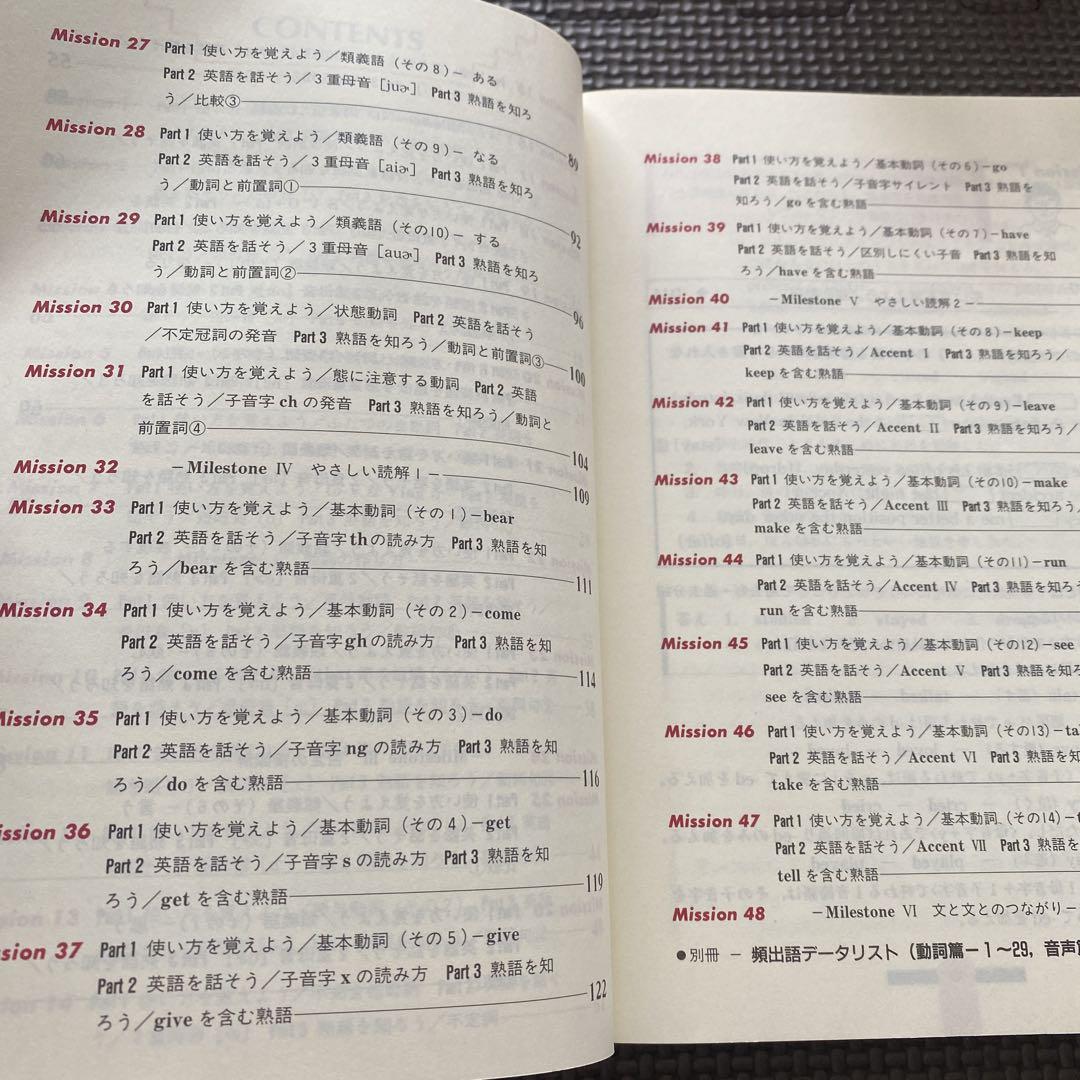 CONTENTS
Mission 27 Part 1 使い方を覚えよう／類義語（その8）− ある
Part 2 英語を話そう／3重母音［juɚ］ Part 3 熟語を知ろ
う／比較③ 89
Mission 28 Part 1 使い方を覚えよう／類義語（その9）− なる
Part 2 英語を話そう／3重母音［aiɚ］ Part 3 熟語を知ろ
う／動詞と前置詞① 92
Mission 29 Part 1 使い方を覚えよう／類義語（その10）− する
Part 2 英語を話そう／3重母音［auɚ］ Part 3 熟語を知ろ
う／動詞と前置詞② 96
Mission 30 Part 1 使い方を覚えよう／状態動詞 Part 2 英語を話そう
／不定冠詞の発音 Part 3 熟語を知ろう／動詞と前置詞③ 100
Mission 31 Part 1 使い方を覚えよう／態に注意する動詞 Part 2 英語
を話そう／子音字 ch の発音 Part 3 熟語を知ろう／動詞と
前置詞④ 104
Mission 32 −Milestone Ⅳ やさしい読解1− 109
Mission 33 Part 1 使い方を覚えよう／基本動詞（その1）−bear
Part 2 英語を話そう／子音字 th の読み方 Part 3 熟語を知
ろう／bear を含む熟語 111
Mission 34 Part 1 使い方を覚えよう／基本動詞（その2）−come
Part 2 英語を話そう／子音字 gh の読み方 Part 3 熟語を知
ろう／come を含む熟語 114
Mission 35 Part 1 使い方を覚えよう／基本動詞（その3）−do
Part 2 英語を話そう／子音字 ng の読み方 Part 3 熟語を知
ろう／do を含む熟語 116
ission 36 Part 1 使い方を覚えよう／基本動詞（その4）−get
Part 2 英語を話そう／子音字 s の読み方 Part 3 熟語を知
ろう／get を含む熟語 119
ssion 37 Part 1 使い方を覚えよう／基本動詞（その5）−give
Part 2 英語を話そう／子音字 x の読み方 Part 3 熟語を知
ろう／give を含む熟語 122
Mission 38 Part 1 使い方を覚えよう／基本動詞（その6）−go
Part 2 英語を話そう／子音字サイレント Part 3 熟語を
知ろう／go を含む熟語
Mission 39 Part 1 使い方を覚えよう／基本動詞（その7）−have
Part 2 英語を話そう／区別しにくい子音 Part 3 熟語を知
ろう／have を含む熟語
Mission 40 −Milestone Ⅴ やさしい読解2−
Mission 41 Part 1 使い方を覚えよう／基本動詞（その8）−keep
Part 2 英語を話そう／Accent Ⅰ Part 3 熟語を知ろう／
keep を含む熟語
Mission 42 Part 1 使い方を覚えよう／基本動詞（その9）−leave
Part 2 英語を話そう／Accent Ⅱ Part 3 熟語を知ろう／
leave を含む熟語
Mission 43 Part 1 使い方を覚えよう／基本動詞（その10）−make
Part 2 英語を話そう／Accent Ⅲ Part 3 熟語を知ろう／
make を含む熟語
Mission 44 Part 1 使い方を覚えよう／基本動詞（その11）−run
Part 2 英語を話そう／Accent Ⅳ Part 3 熟語を知ろう
run を含む熟語
Mission 45 Part 1 使い方を覚えよう／基本動詞（その12）−see
Part 2 英語を話そう／Accent Ⅴ Part 3 熟語を知ろ
see を含む熟語
Mission 46 Part 1 使い方を覚えよう／基本動詞（その13）−ta
Part 2 英語を話そう／Accent Ⅵ Part 3 熟語を知ろ
take を含む熟語
Mission 47 Part 1 使い方を覚えよう／基本動詞（その14）−t
Part 2 英語を話そう／Accent Ⅶ Part 3 熟語を
tell を含む熟語
Mission 48 −Milestone Ⅵ 文と文とのつながり−
●別冊 − 頻出語データリスト（動詞篇−1〜29，音声